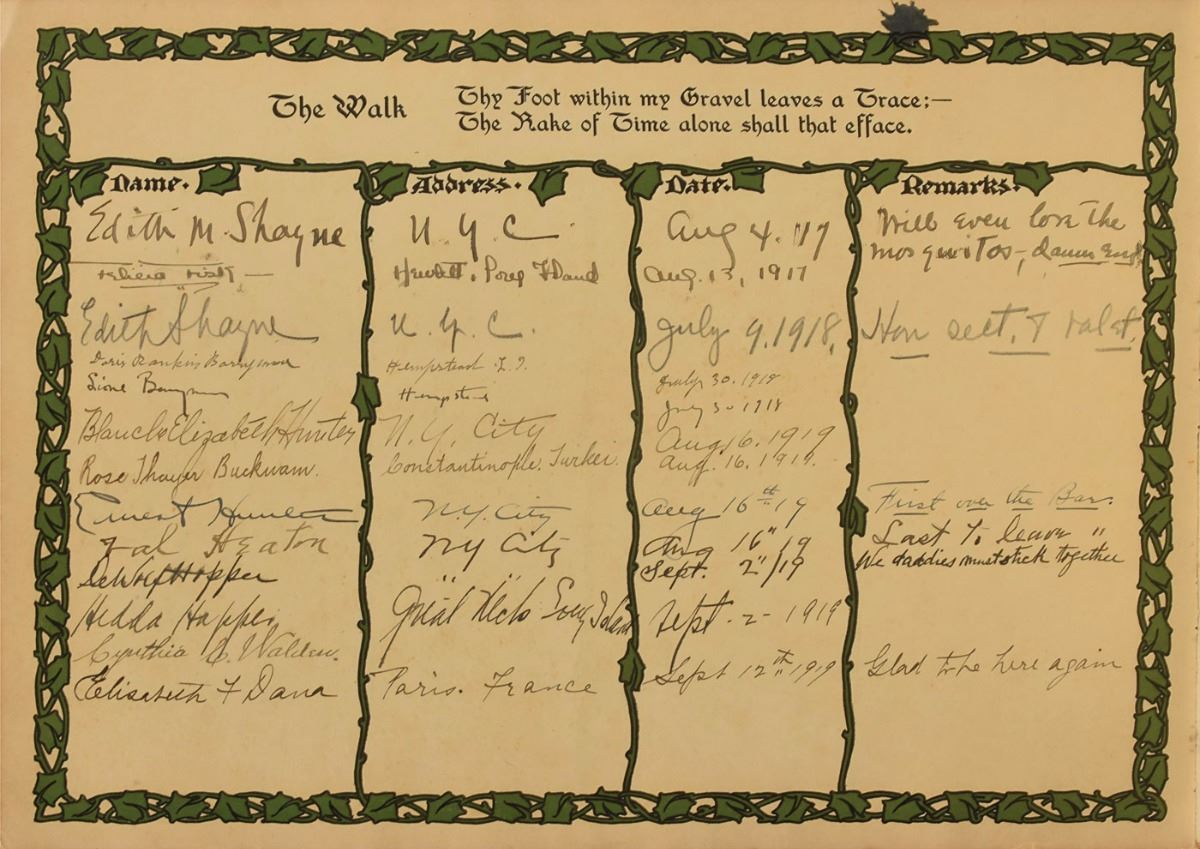 The Walk
Thy Foot within my Gravel leaves a Trace;—
The Rake of Time alone shall that efface.
Name. Address. Date. Remarks.
Edith M. Shayne N.Y.C. Aug 4. '17 Will even love the
mosquitos-, damn
Hewlett, Long Island Aug. 13, 1917
Edith Shayne N.Y.C. July 9. 1918. Non sect.
Doris Rankin Barrymore Hempstead L.I. July 30. 1918
Hempstead July 30 1918
Blanche Elizabeth Hunter N.Y. City Aug 16. 1919
Rose Thayer Buckwam. Constantinople. Turkei. Aug. 16. 1919.
Ernest Hunter N.Y. City Aug 16th 19 First over the Bar.
Hal Heaton NY City Aug 16" 19 Last To leave "
DeWolf Hopper " " Sept. 2"/19 We daddies must stick together
Hedda Hopper Great Neck Long Island Sept - 2 - 1919
Cynthia C. Walden.
Elisabeth F Dana Paris. France Sept 12th 1919 Glad to be here again